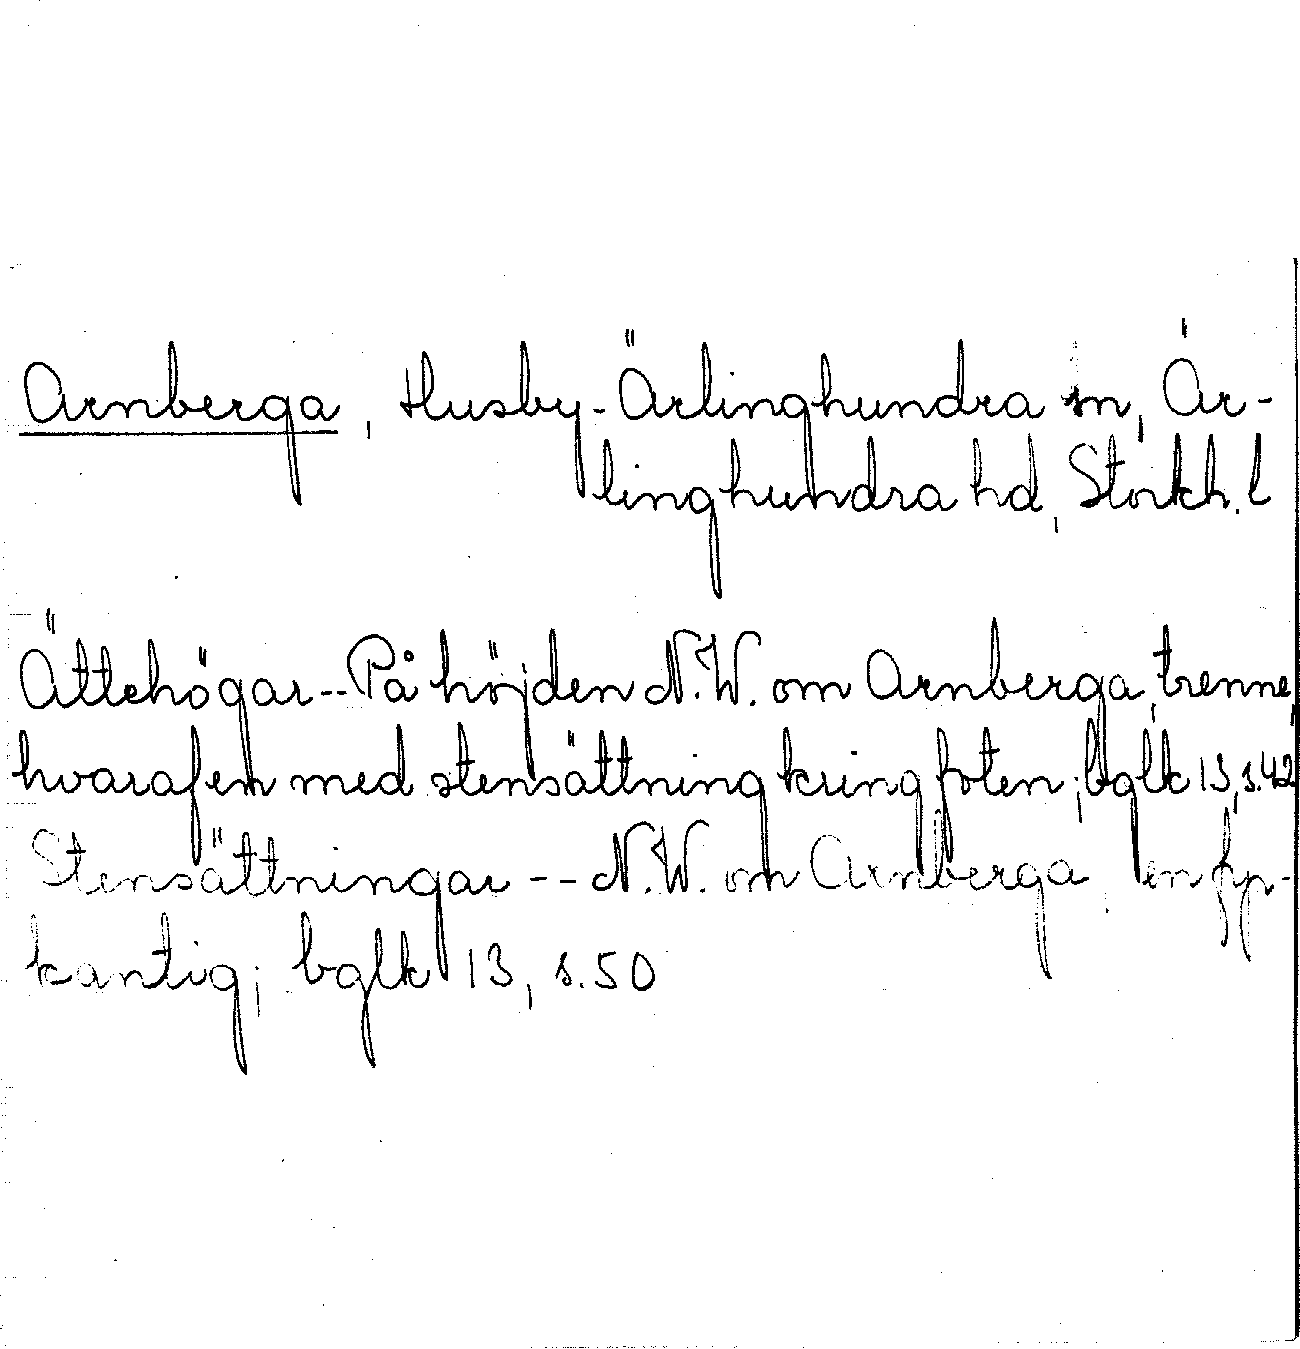 Arnberga, Husby-Ärlinghundra sn, Är-
linghundra hd, Stockh. l
Ättehögar -- På höjden N.W. om Arnberga, trenne,
hvaraf en med stensättning kring foten; bglk 13, s.42
Stensättningar -- N.W. om Arnberga, en fyr-
kantig; bglk 13, s.50